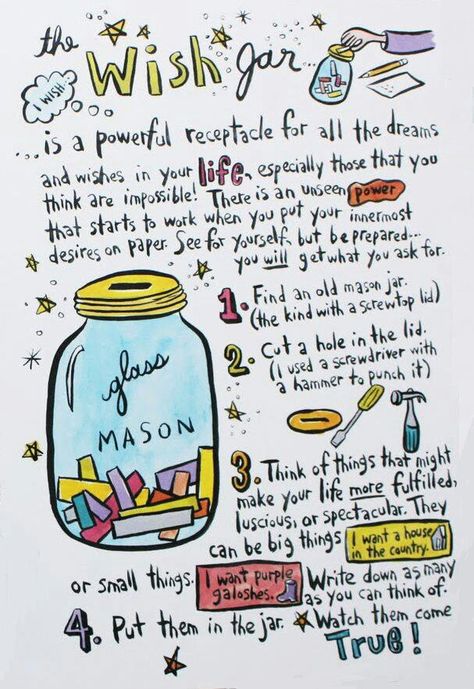 the Wish Jar...
I WISH
...is a powerful receptacle for all the dreams
and wishes in your life, especially those that you
think are impossible! There is an unseen power
that starts to work when you put your innermost
desires on paper. See for yourself, but be prepared...
you will get what you ask for.
1. Find an old mason jar.
(the kind with a screwtop lid)
2. Cut a hole in the lid.
(I used a screwdriver with
a hammer to punch it)
glass
MASON
3. Think of things that might
make your life more fulfilled,
luscious, or spectacular. They
can be big things I want a house
in the country.
or small things. I want purple
galoshes. Write down as many
as you can think of.
4. Put them in the jar. Watch them come
True!